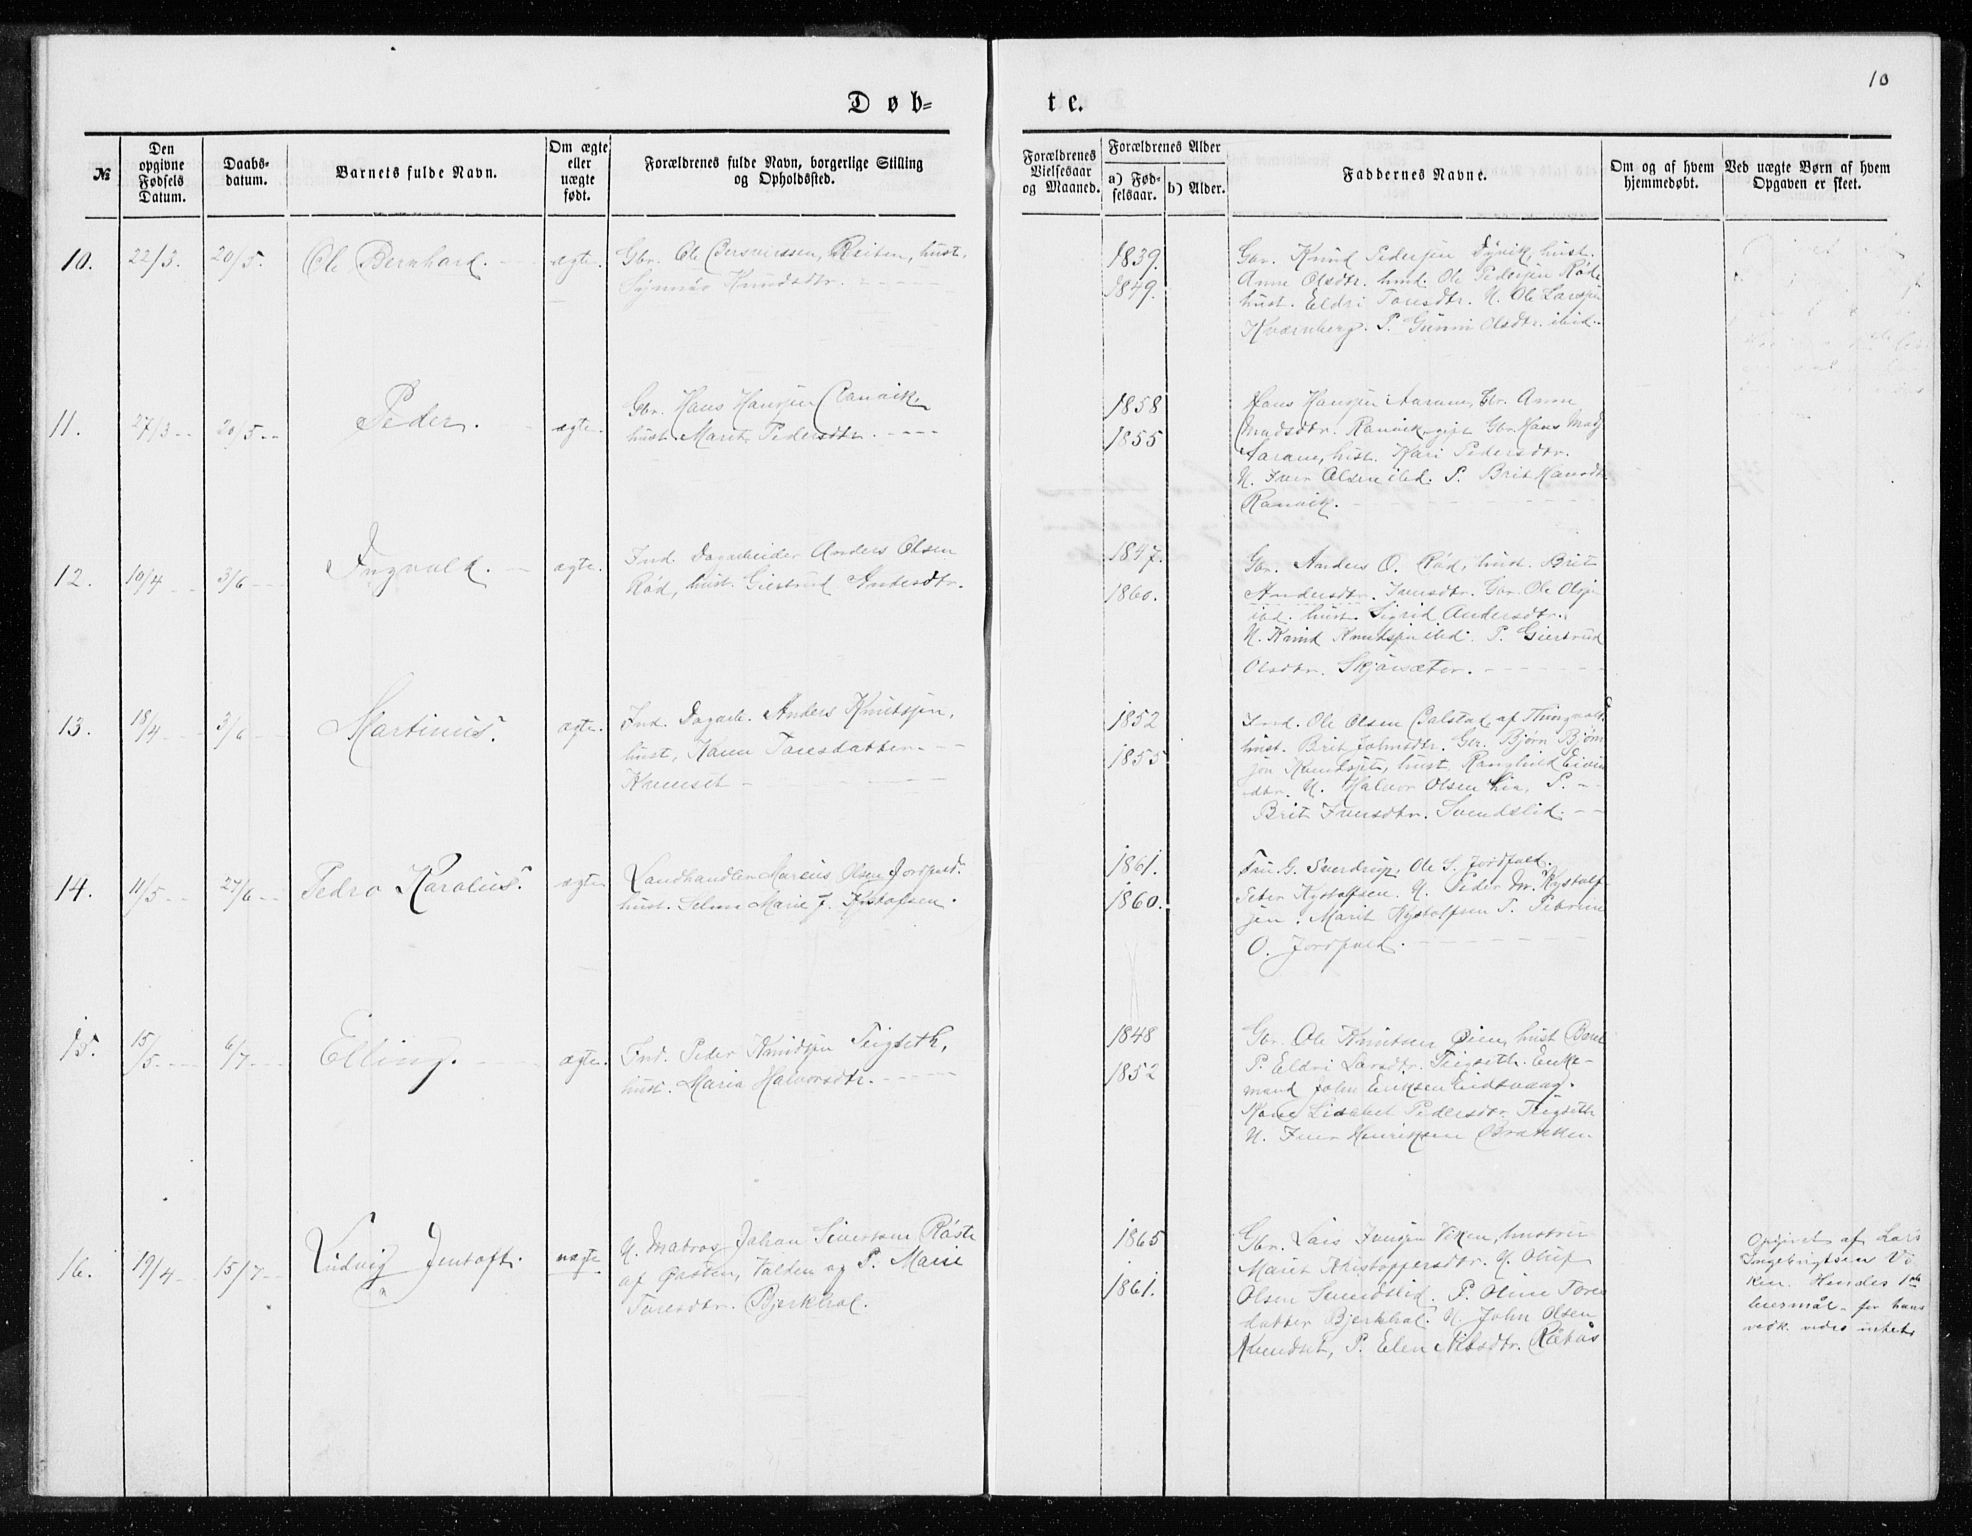 10
Døb-
te.
№
Den opgivne Fødsels Datum.
Daabs-datum.
Barnets fulde Navn.
Om ægte eller uægte født.
Forældrenes fulde Navn, borgerlige Stilling og Opholdssted.
Forældrenes Vielsesaar og Maaned.
Forældrenes Alder
a) Fød-selsaar.
b) Alder.
Faddernes Navne.
Om og af hvem hjemmedøbt.
Ved uægte Børn af hvem Opgaven er skeet.
10. 22/3. 20/5. Ole Bernhard. ægte. Gbr. Ole Bersveinssen, Reiten, hust.
Synnøv Knudsdtr.
1839.
1849.
Gbr. Knud Pedersen Dyvik, hust.
Anne Olsdtr. hmd. Ole Pedersen Rød,
hust. Eldri Toresdtr. U. Ole Larssen
Kvernberg. P. Gunni Olsdtr. ibid.
11. 27/3 20/5 Peder. ægte. Gbr. Hans Hansen Ranvik,
hust. Marit Pedersdtr.
1858
1855
Hans Hansen Aarame, Gbr. Anne
Madsdtr. Ranvik, gift Gbr. Hans Mads
Aarame, hust. Kari Pedersdtr.
U. Iver Olsen ibid. P. Brit Hansdtr.
Ranvik.
12. 10/4 3/6 Ingvald. ægte. Ind. Dagarbeider Anders Olsen
Rød, hust. Giertrud Andersdtr.
1847.
1860.
Gbr. Anders O. Rød, hust. Brit
Andersdtr. Iversdtr. Gbr. Ole Olsen
ibd. hust. Sigrid Andersdtr.
U. Knud Knudsen ibid. P. Giertrud
Olsdtr. Skjørsæter.
13. 18/4 3/6 Martinus. ægte. Ind. Dagarb. Anders Knudsen,
hust. Karen Toresdatter
1852
1855
Ind. Ole Olsen
hust. Brit Johnsdtr. Gbr. Bjørn Bjørn
sen hust. Ranghild
dtr. U. Halvor Olsen Lia, P.
Brit Iversdtr. Svendslid.
14. 11/5 24/6 Pedro Karolius. ægte Landhandler Marius Olsen Jordfald.
hust. Selma Marie J. Kystolfsen.
1861.
1860.
G. Sverdrup, Ole S. Jordfald.
Peter Kystolfsen. U. Peder M. Kystolf
sen. Marit Kystolfsen P. Petrine
O. Jordfald.
15. 15/5 6/7 Elling. ægte. Ind. Peder Knudsen Teigseth,
hust. Maria Halvorsdtr.
1848
1852
Gbr. Ole Knutsen Øien, hust. Beret
P. Eldri Larsdtr. Teigseth. Enke-
mand John Eriksen Eidsvaag.
Kone Lisabet Pedersdtr. Teigseth
U. Iver Henriksen Brakken
16. 19/4 15/7 Ludvig Jentoft. uægte U. Matros Johan Sivertsen Røste
af Østen, Valden og P. Marie
Toresdtr. Bjerkhol.
1865
1861.
Gbr. Lars Viken, hustru
Marit Kristoffersdtr. U. Oluf
Olsen Svendslid. P. Oline Tores
datter Bjerkhol. U. John Olsen
P. Elen Nilsdtr. Røkas
Opgivet af Lars
Ingebrigtsen Vi
ken. Hendes 1ste
leiermål - for hans
vedk. vides intet